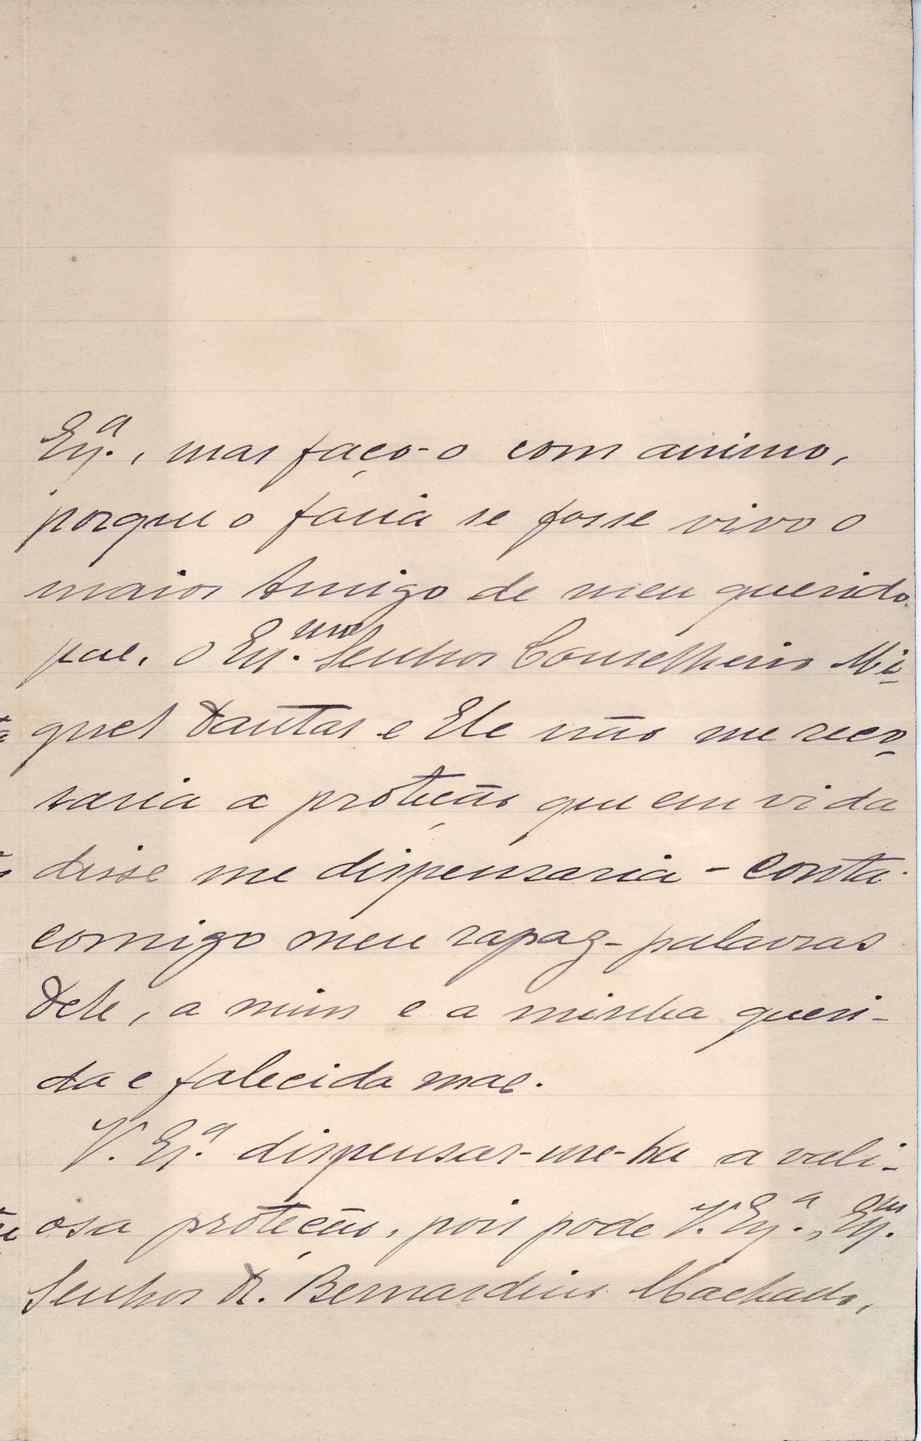 Ex.ª, mas faço-o com animo,
porque o faria se fosse vivo o
maior Amigo de meu querido
pae, o Ex.mo Senhor Conselheiro Mi-
guel Dantas e Ele não me recu-
saria a proteção que em vida
disse me dispensaria - conta
comigo meu rapaz - palavras
Dele, a mim e a minha queri-
da e falecida mae.
V. Ex.ª dispensar-me-ha a vali-
osa proteção, pois pode V. Ex.ª, Ex.mo
Senhor Dr. Bernardino Machado,